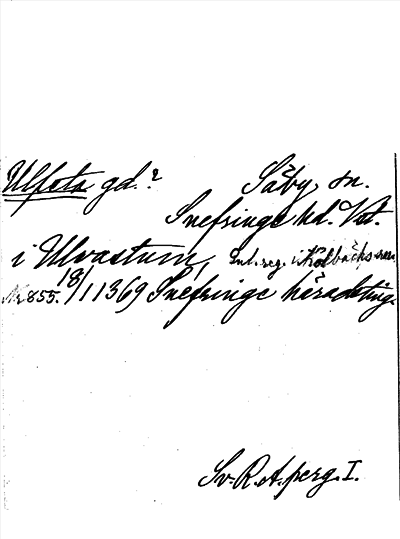 Ulfsta gd.? Säby sn.
Snefringe hd. Vst.
i Ulvastum, Enl. reg. i Kolbäcks sn.
Nr 855. 18/1 1369 Snefringe häradsting.
Sv. R. A. perg. I.